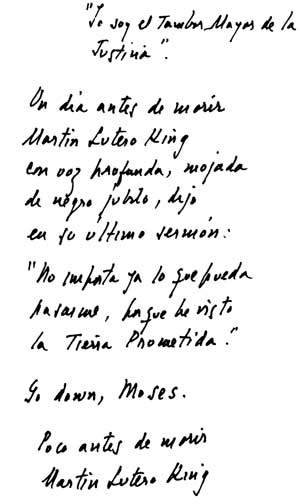 "Yo soy el Tambor Mayor de la
Justicia".
Un día antes de morir
Martin Lutero King
con voz profunda, mojada
de negro júbilo, dijo
en su último sermón:
"No importa ya lo que pueda
pasarme, porque he visto
la Tierra Prometida."
Go down, Moses.
Poco antes de morir
Martin Lutero King